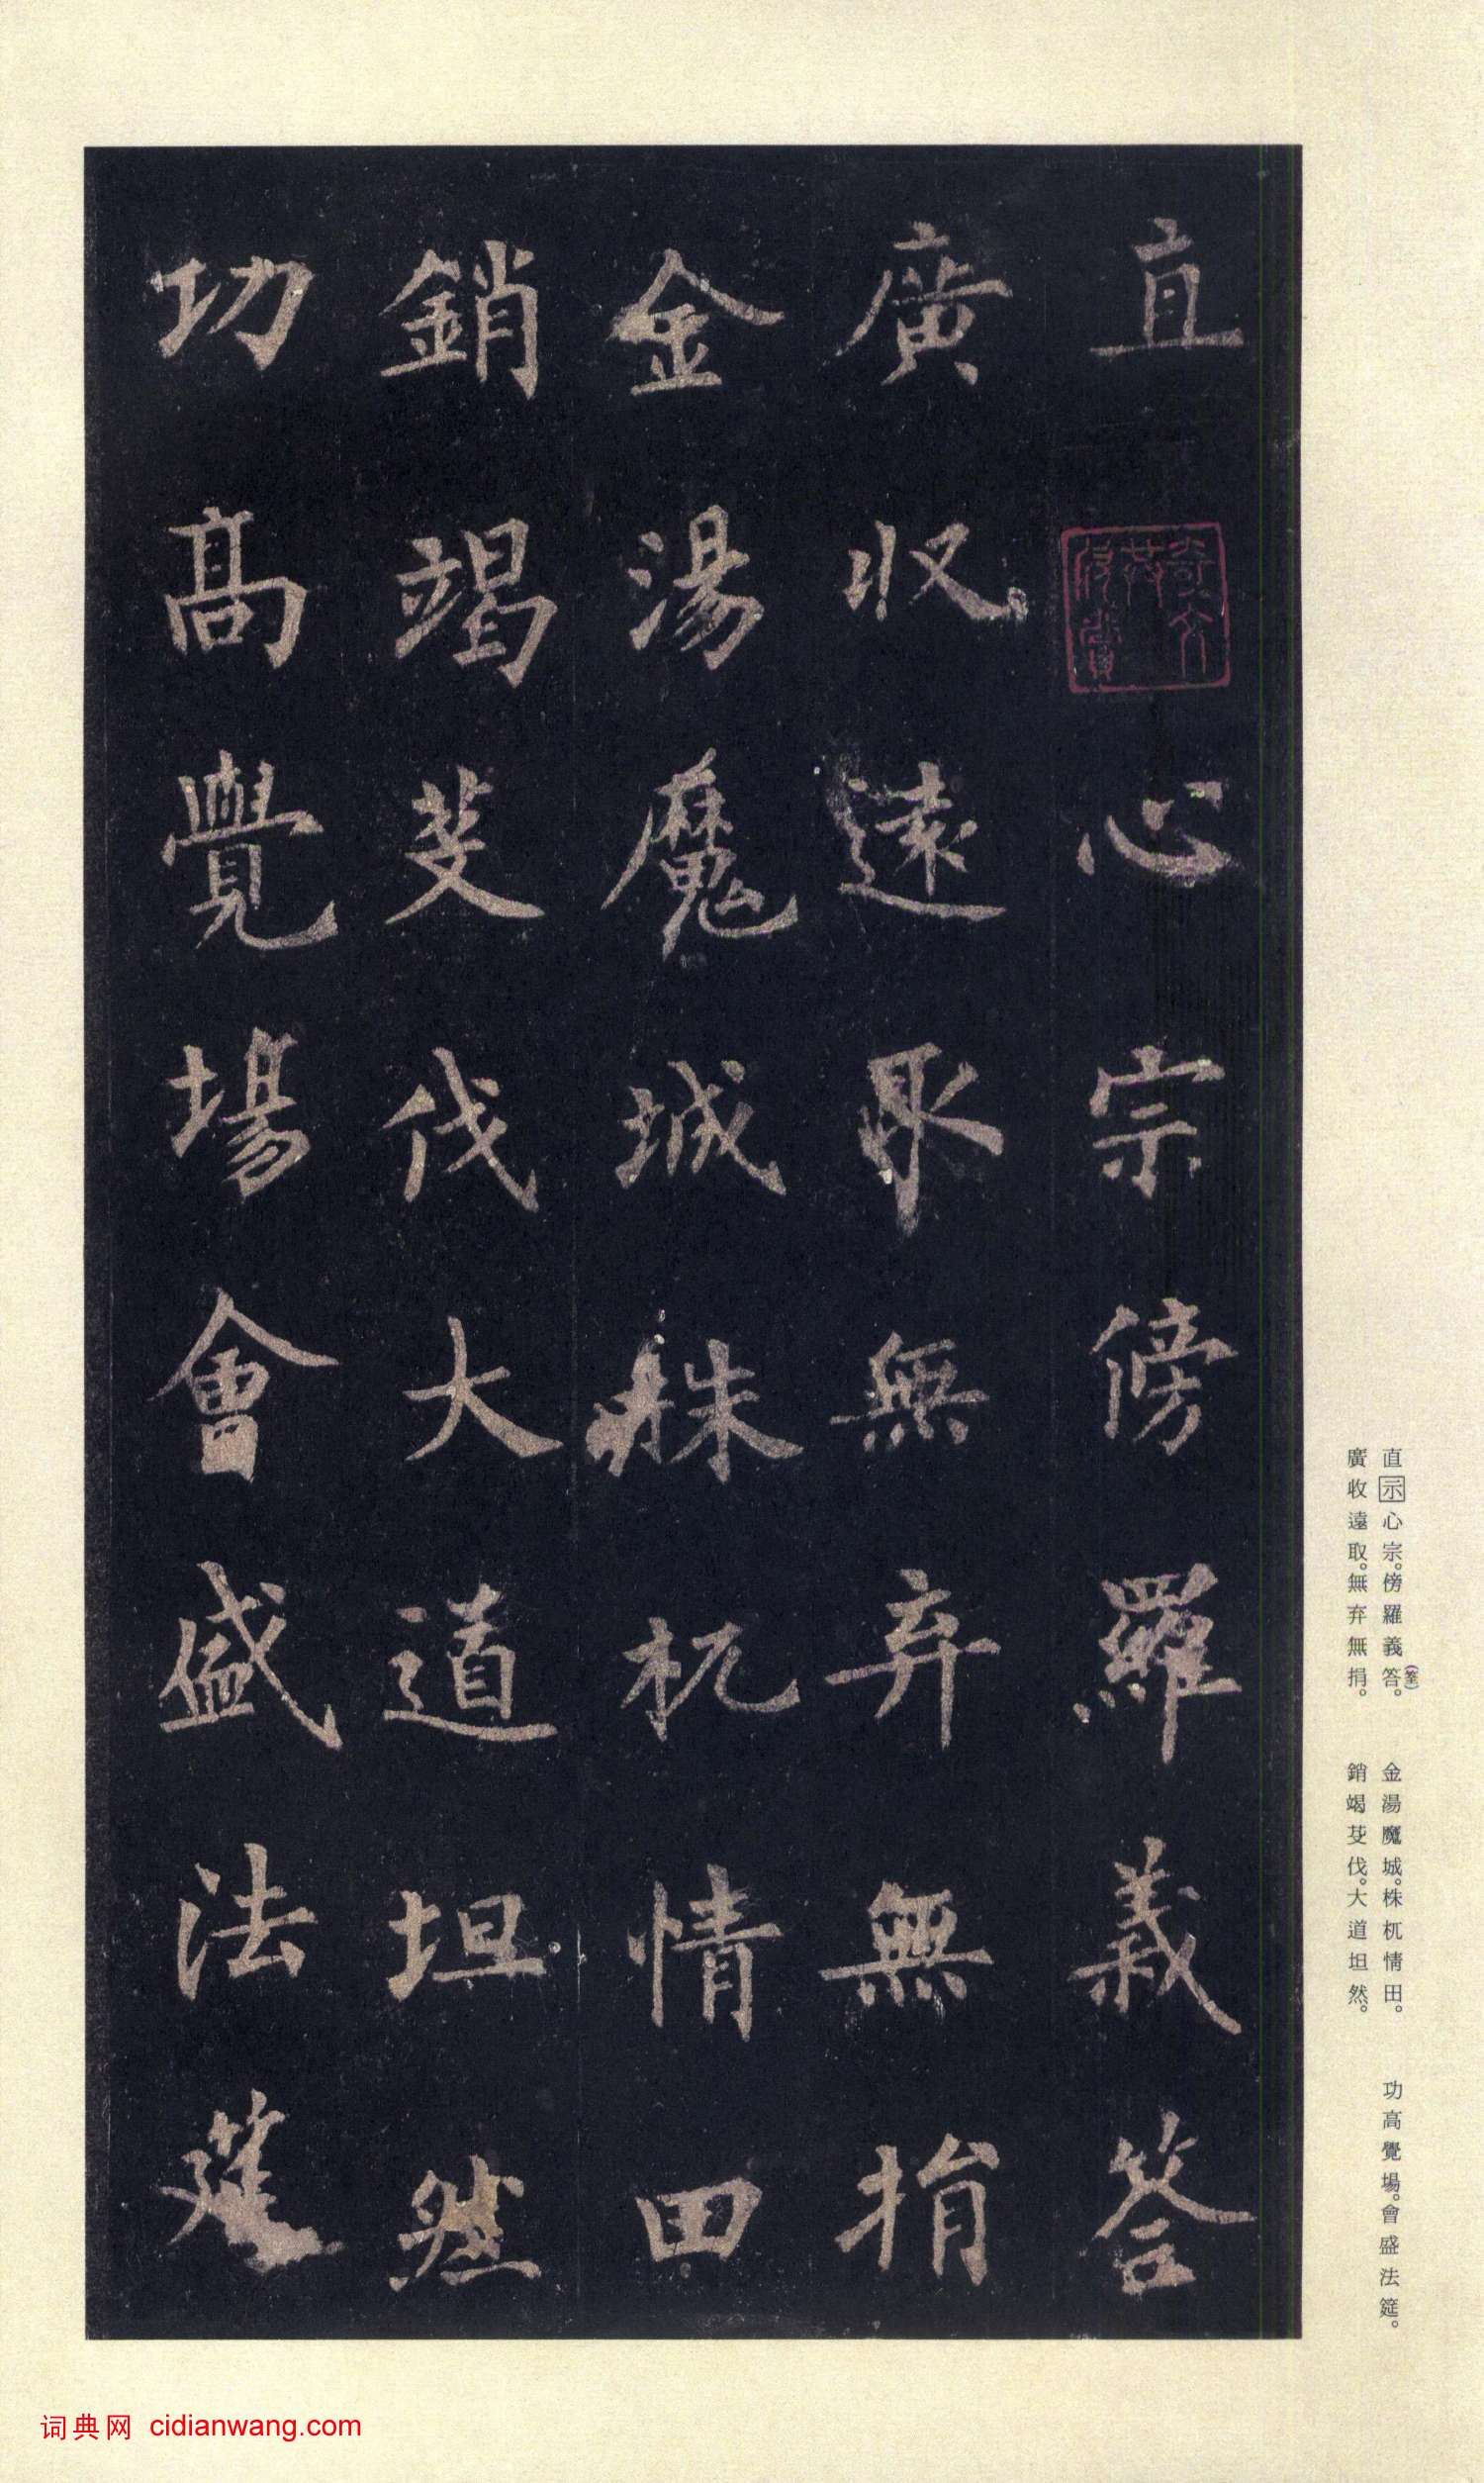 直心宗傍羅義荅
廣收遠取無弃無捐
金湯魔城株杌情田
銷竭芟伐大道坦然
功高覺場會盛法筵
奇文共欣賞
直示心宗。傍羅義答(筌)。
廣收遠取。無弃無捐。
金湯魔城。株杌情田。
銷竭芟伐。大道坦然。
功高覺場。會盛法筵。
词典网 cidianwang.com